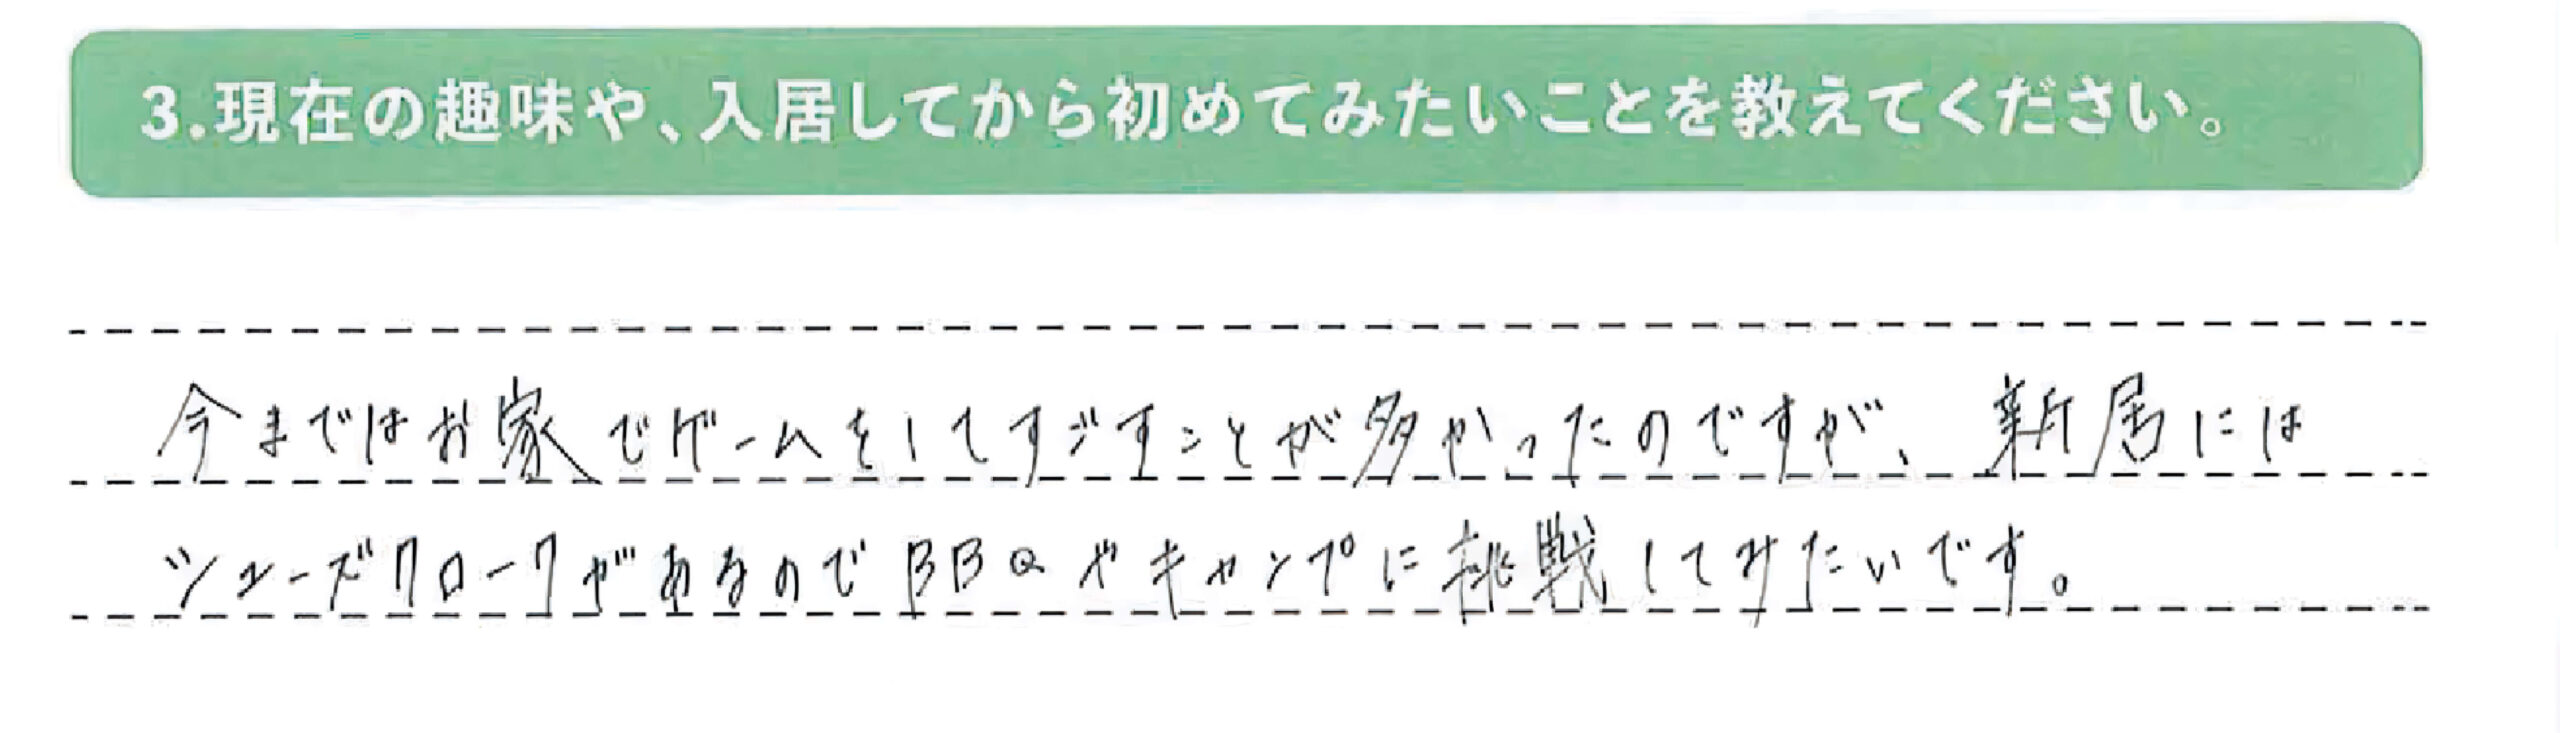 3.現在の趣味や、入居してから初めてみたいことを教えてください。
今まではお家でゲームをしてすごすことが多かったのですが、新居には
シューズクロークがあるのでBBQやキャンプに挑戦してみたいです。